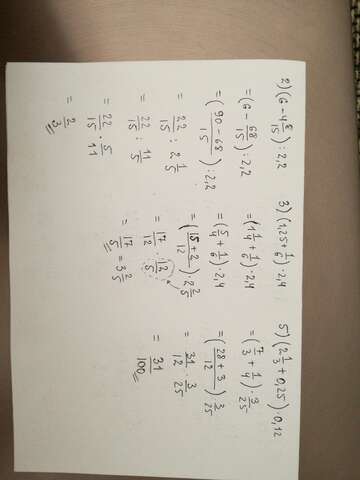 2) (6 - 4 8/15) : 2,2
= (6 - 68/15) : 2,2
= (90 - 68/15) : 2,2
= 22/15 : 2 1/5
= 22/15 : 11/5
= 22/15 · 5/11
= 2/3
3) (1,25 + 1/6) · 2,4
= (1 1/4 + 1/6) · 2,4
= (5/4 + 1/6) · 2,4
= (15 + 2/12) · 2 2/5
= 17/12 · 12/5
= 17/5 = 3 2/5
5) (2 1/3 + 0,25) · 0,12
= (7/3 + 1/4) · 3/25
= (28 + 3/12) · 3/25
= 31/12 · 3/25
= 31/100